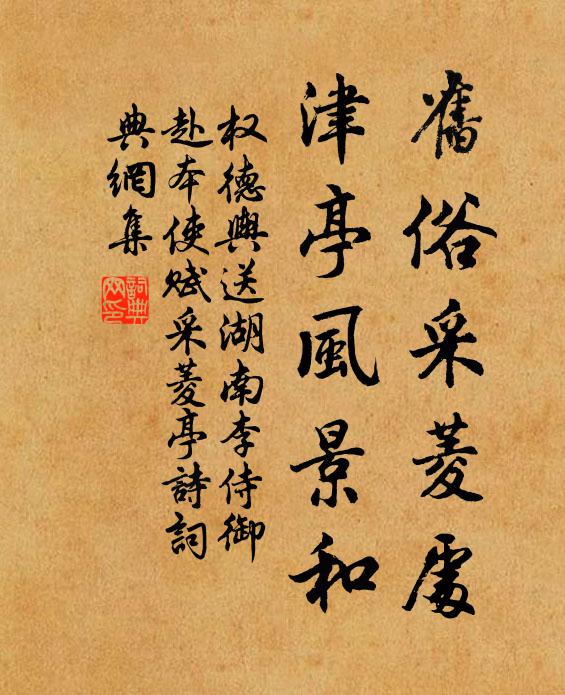 舊俗采菱處
津亭風景和
权德輿送湖南李侍御
赴本使赋采菱亭詩詞
典網集
詞典網印